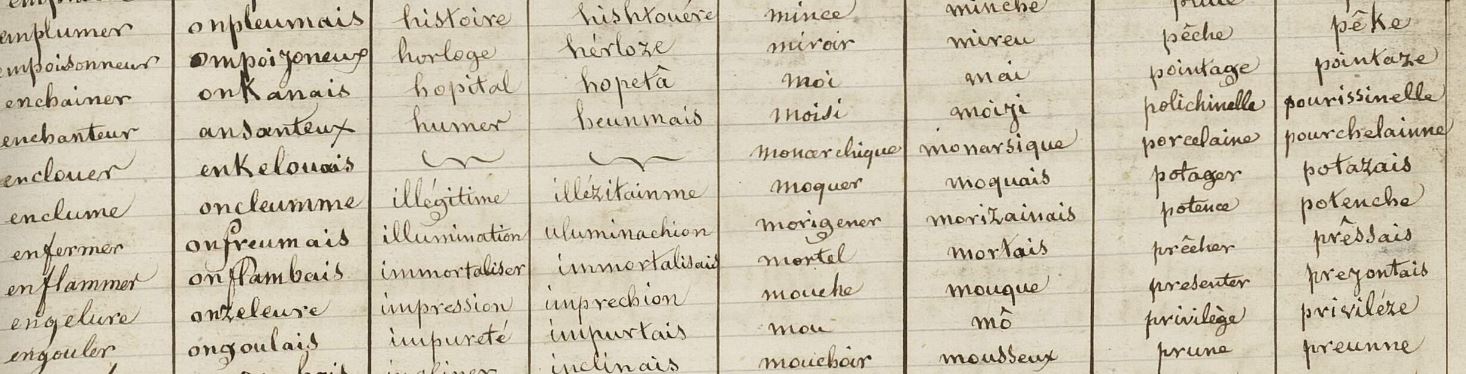 emplumer onpleumais
empoisonneur ompoizoneux
enchainer onkanais
enchanteur ansanteux
enclouer enkelouais
enclume oncleumme
enfermer onfreumais
enflammer onflambais
engelure onzeleure
engouler ongoulais
histoire hishtouére
horloge hérloze
hopital hopetâ
humer heunmais
illégitime illézitainme
illumination uluminachion
immortaliser immortalisais
impression imprechion
impureté impurtais
inclinais
mince minche
miroir mireu
moi mai
moisi moizi
monarchique monarsique
moquer moquais
morigener morizainais
mortel mortais
mouche mouque
mou mô
mouchoir mousseux
pêche pêke
pointage pointaze
polichinelle pourissinelle
porcelaine pourchelainne
potager potazais
potence potenche
prêcher prêssais
presenter prezontais
privilège priviléze
prune preunne